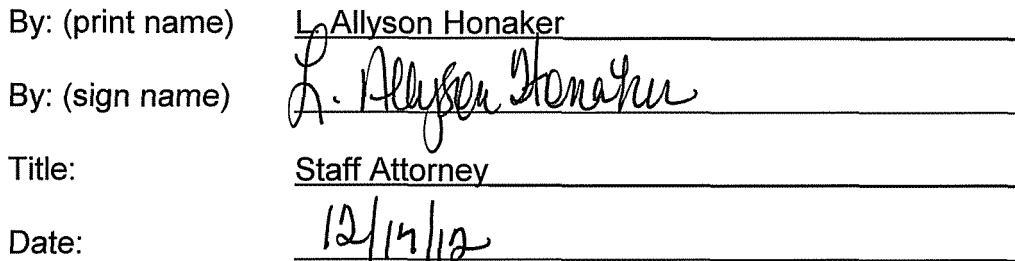 By: (print name) L. Allyson Honaker
By: (sign name) L. Allyson Honaker
Title: Staff Attorney
Date: 12/14/12